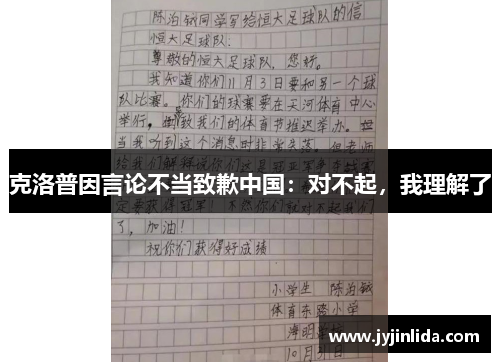 陈泊钺同学写给恒大足球队的信
恒大足球队:
尊敬的恒大足球队，您好。
我知道你们11月3日要和另一个球
队比赛。你们的球赛要在天河体育中心
举行，由致我们的体育节推迟举办。但
当我听到这个消息时非常失落。但老师
克洛普因言论不当致歉中国：对不起，我理解了
定要获得冠军！不然你们就对不起我们
了，加油！
祝你们获得好成绩
小学生 陈泊钺
体育东路小学
海明
10月31日
www.jyjinlida.com